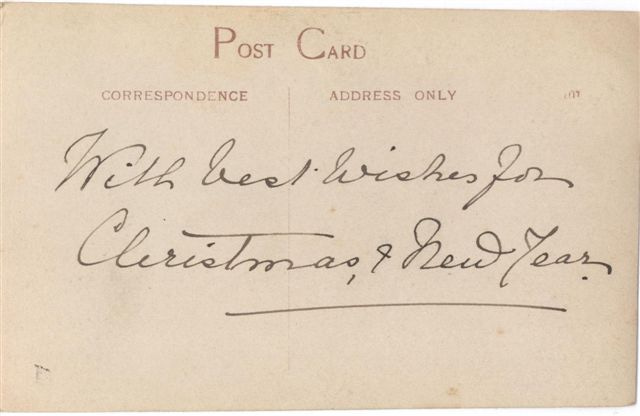 POST CARD
CORRESPONDENCE
ADDRESS ONLY
With best wishes for
Christmas, & New Year.